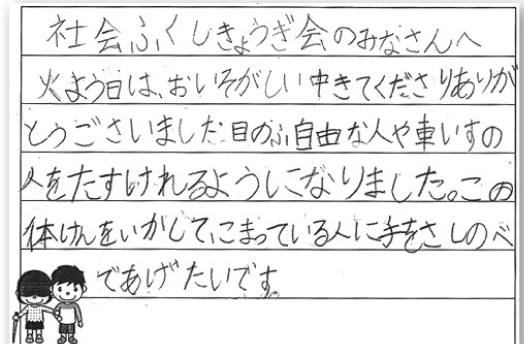 社会ふくしきょうぎ会のみなさんへ
火よう日は、おいそがしい中きてくださりありが
とうございました。目のふ自由な人や車いすの
人をたすけれるようになりました。この
体けんをいかして、こまっている人に手をさしのべ
てあげたいです。